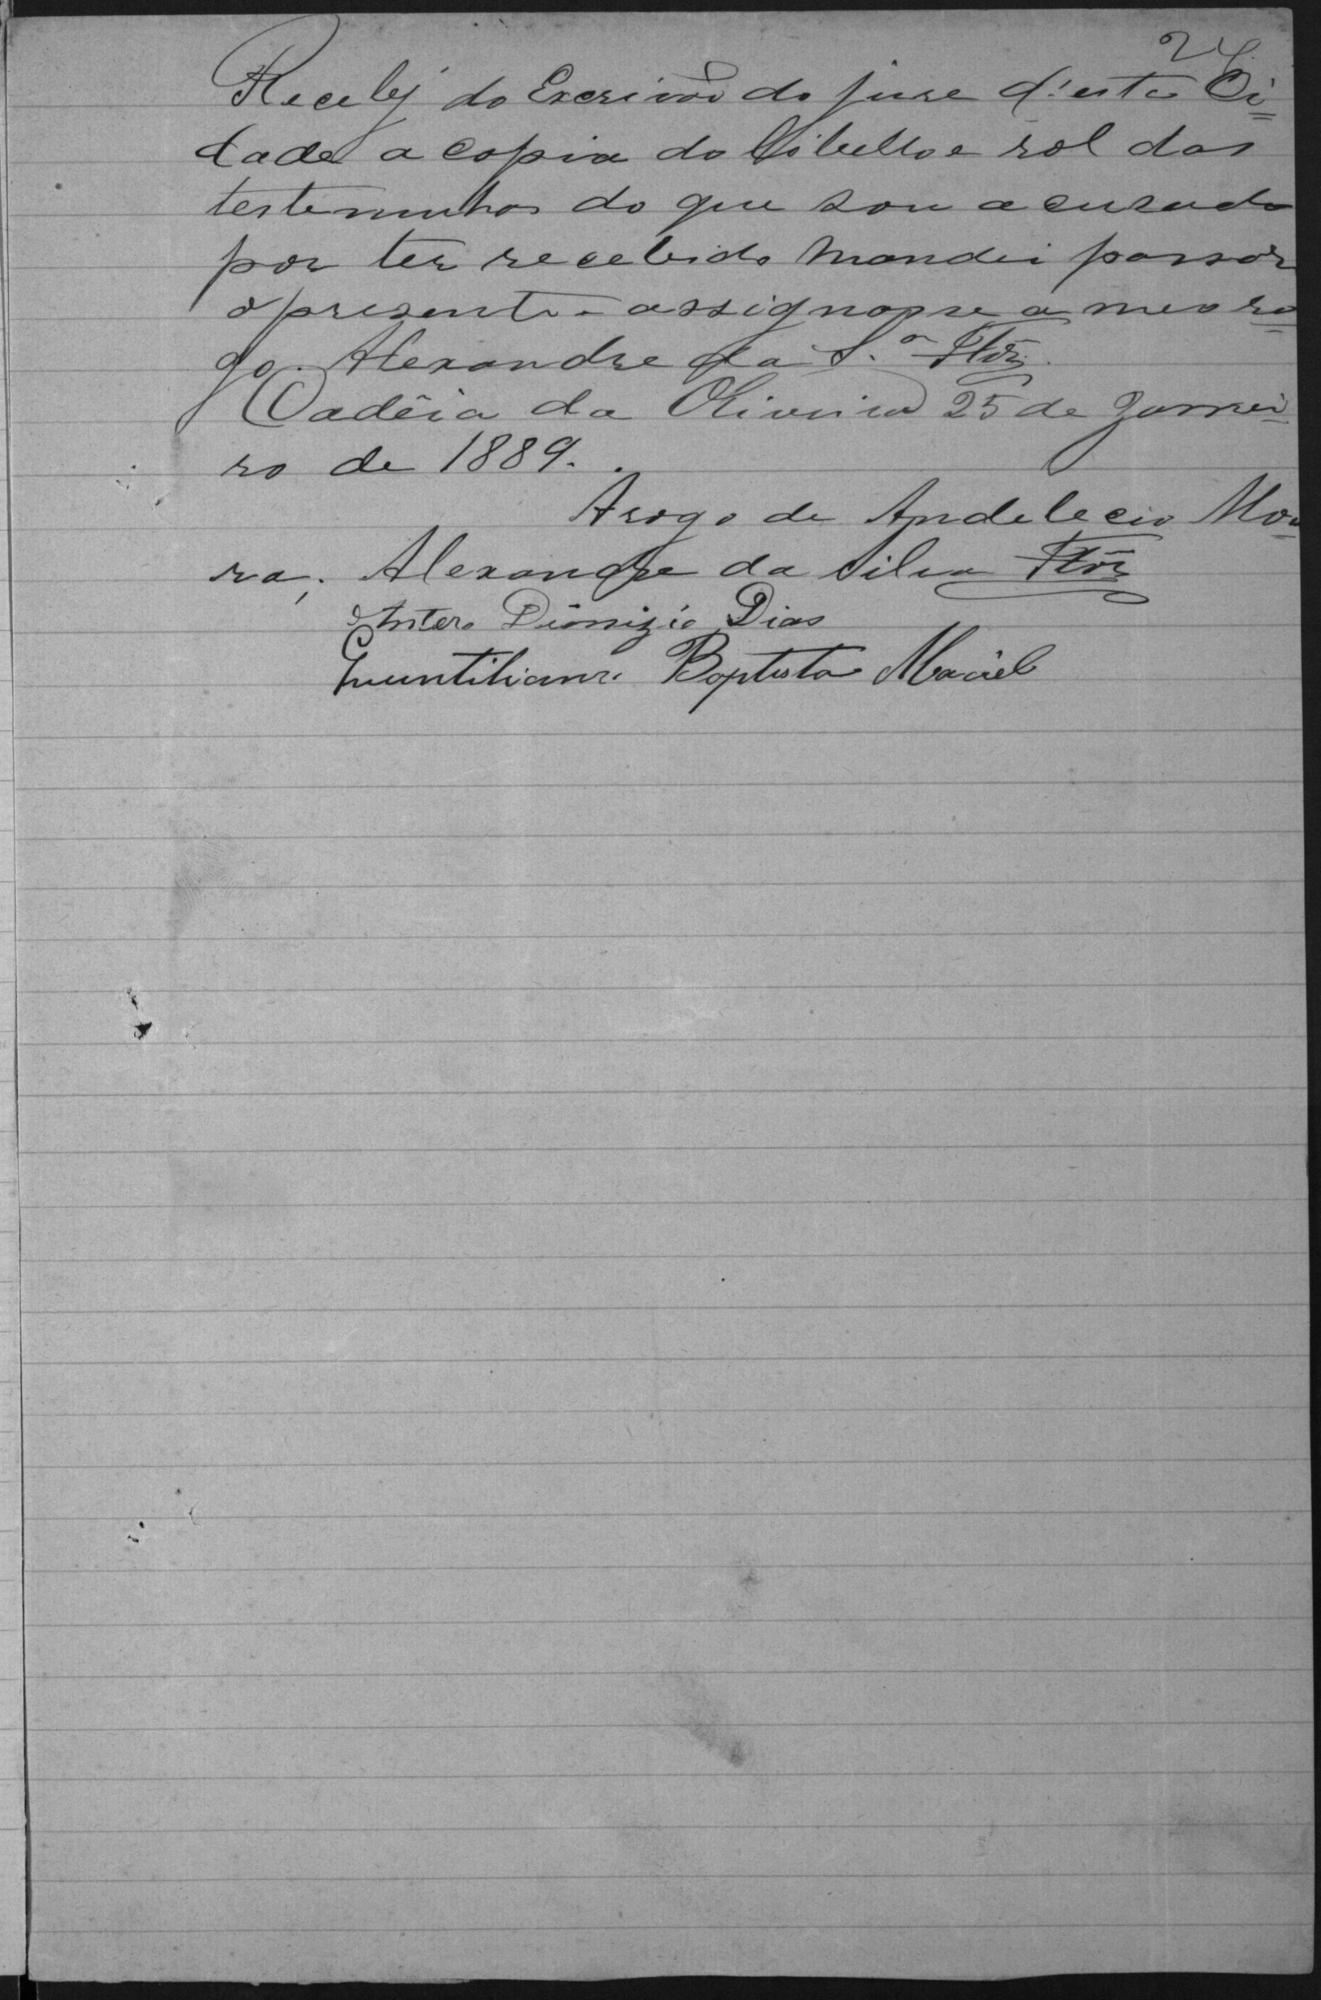 24
Recebi do Escrivão do jure d'esta Ci=
dade a copia do libello e rol das
testemunhas do que sou accusado
por ter recebido mandei passar
o presente assignapre a meo ro
go. Alexandre da S.ª Flôr.
Cadêia da Oliveira 25 de Janei-
ro de 1889.
Arogo de Andelecio Mou
ra, Alexandre da Silva Flôr
Antero Dionizio Dias
Quintiliano Baptista Maciel